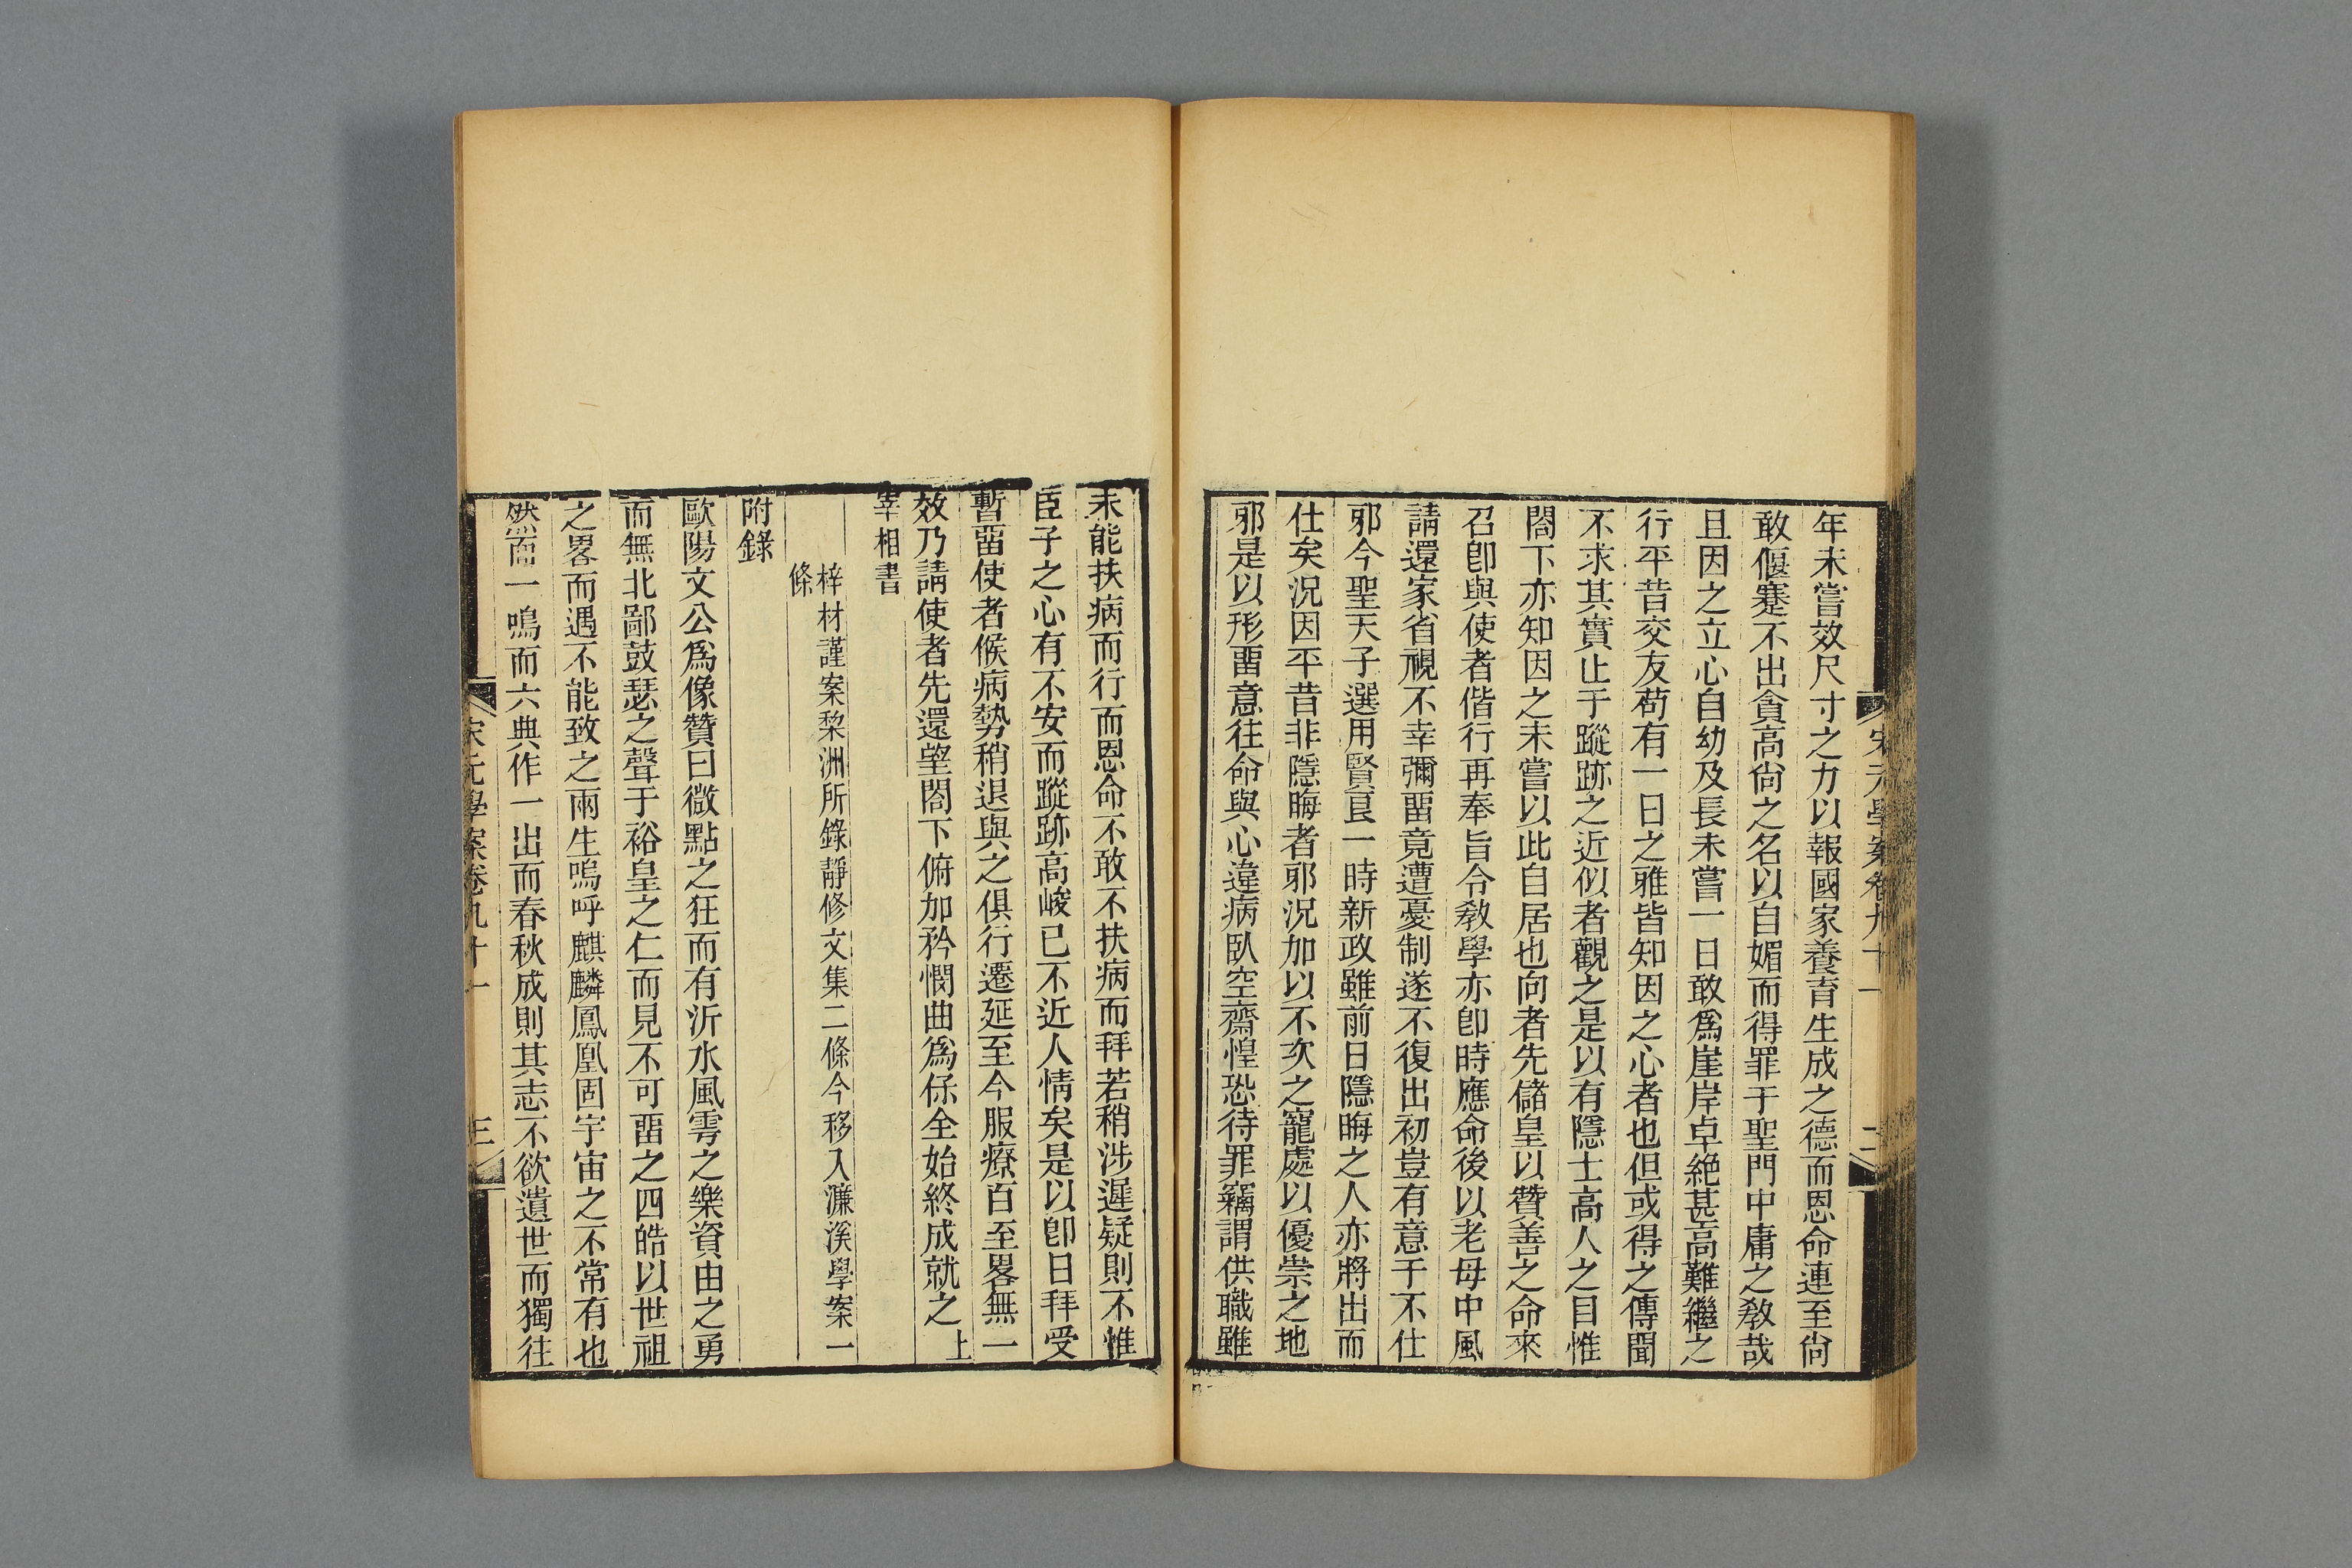 宋元學案卷九十一
二
年未嘗效尺寸之力以報國家養育生成之德而恩命連至尙
敢偃蹇不出貪高尙之名以自媚而得罪于聖門中庸之敎哉
且因之立心自幼及長未嘗一日敢爲崖岸卓絶甚高難繼之
行平昔交友茍有一日之雅皆知因之心者也但或得之傳聞
不求其實止于蹤跡之近似者觀之是以有隱士高人之目惟
閤下亦知因之未嘗以此自居也向者先儲皇以贊善之命來
召卽與使者偕行再奉旨令敎學亦卽時應命後以老母中風
請還家省視不幸彌畱竟遭憂制遂不復出初豈有意于不仕
邪今聖天子選用賢良一時新政雖前日隱晦之人亦將出而
仕矣況因平昔非隱晦者邪況加以不次之寵處以優崇之地
邪是以形畱意往命與心違病臥空齋惶恐待罪竊謂供職雖
未能扶病而行而恩命不敢不扶病而拜若稍涉遲疑則不惟
臣子之心有不安而蹤跡高峻已不近人情矣是以卽日拜受
暫畱使者候病勢稍退與之俱行遷延至今服療百至畧無一
效乃請使者先還望閤下俯加矜憫曲爲保全始終成就之上
宰相書
梓材謹案棃洲所錄靜修文集二條今移入濂溪學案一
條
附錄
歐陽文公爲像贊曰微點之狂而有沂水風雩之樂資由之勇
而無北鄙鼓瑟之聲于裕皇之仁而見不可畱之四皓以世祖
之畧而遇不能致之兩生嗚呼麒麟鳳凰固宇宙之不常有也
然而一鳴而六典作一出而春秋成則其志不欲遺世而獨往
宋元學案卷九十一
三